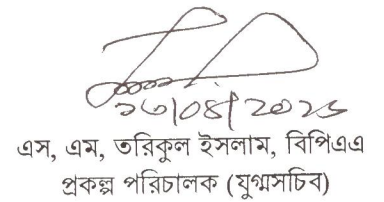 এস, এম, তরিকুল ইসলাম, বিপিএএ
প্রকল্প পরিচালক (যুগ্মসচিব)